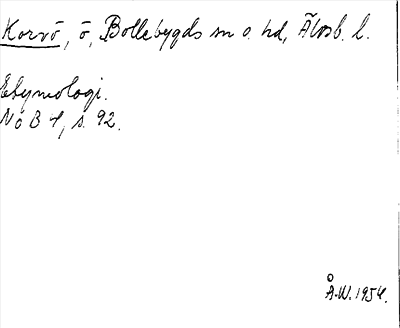 Korvö, ö, Bollebygds sn o. hd, Älvsb. l.
Etymologi.
NoB 1, s. 92.
Å.W. 1954.